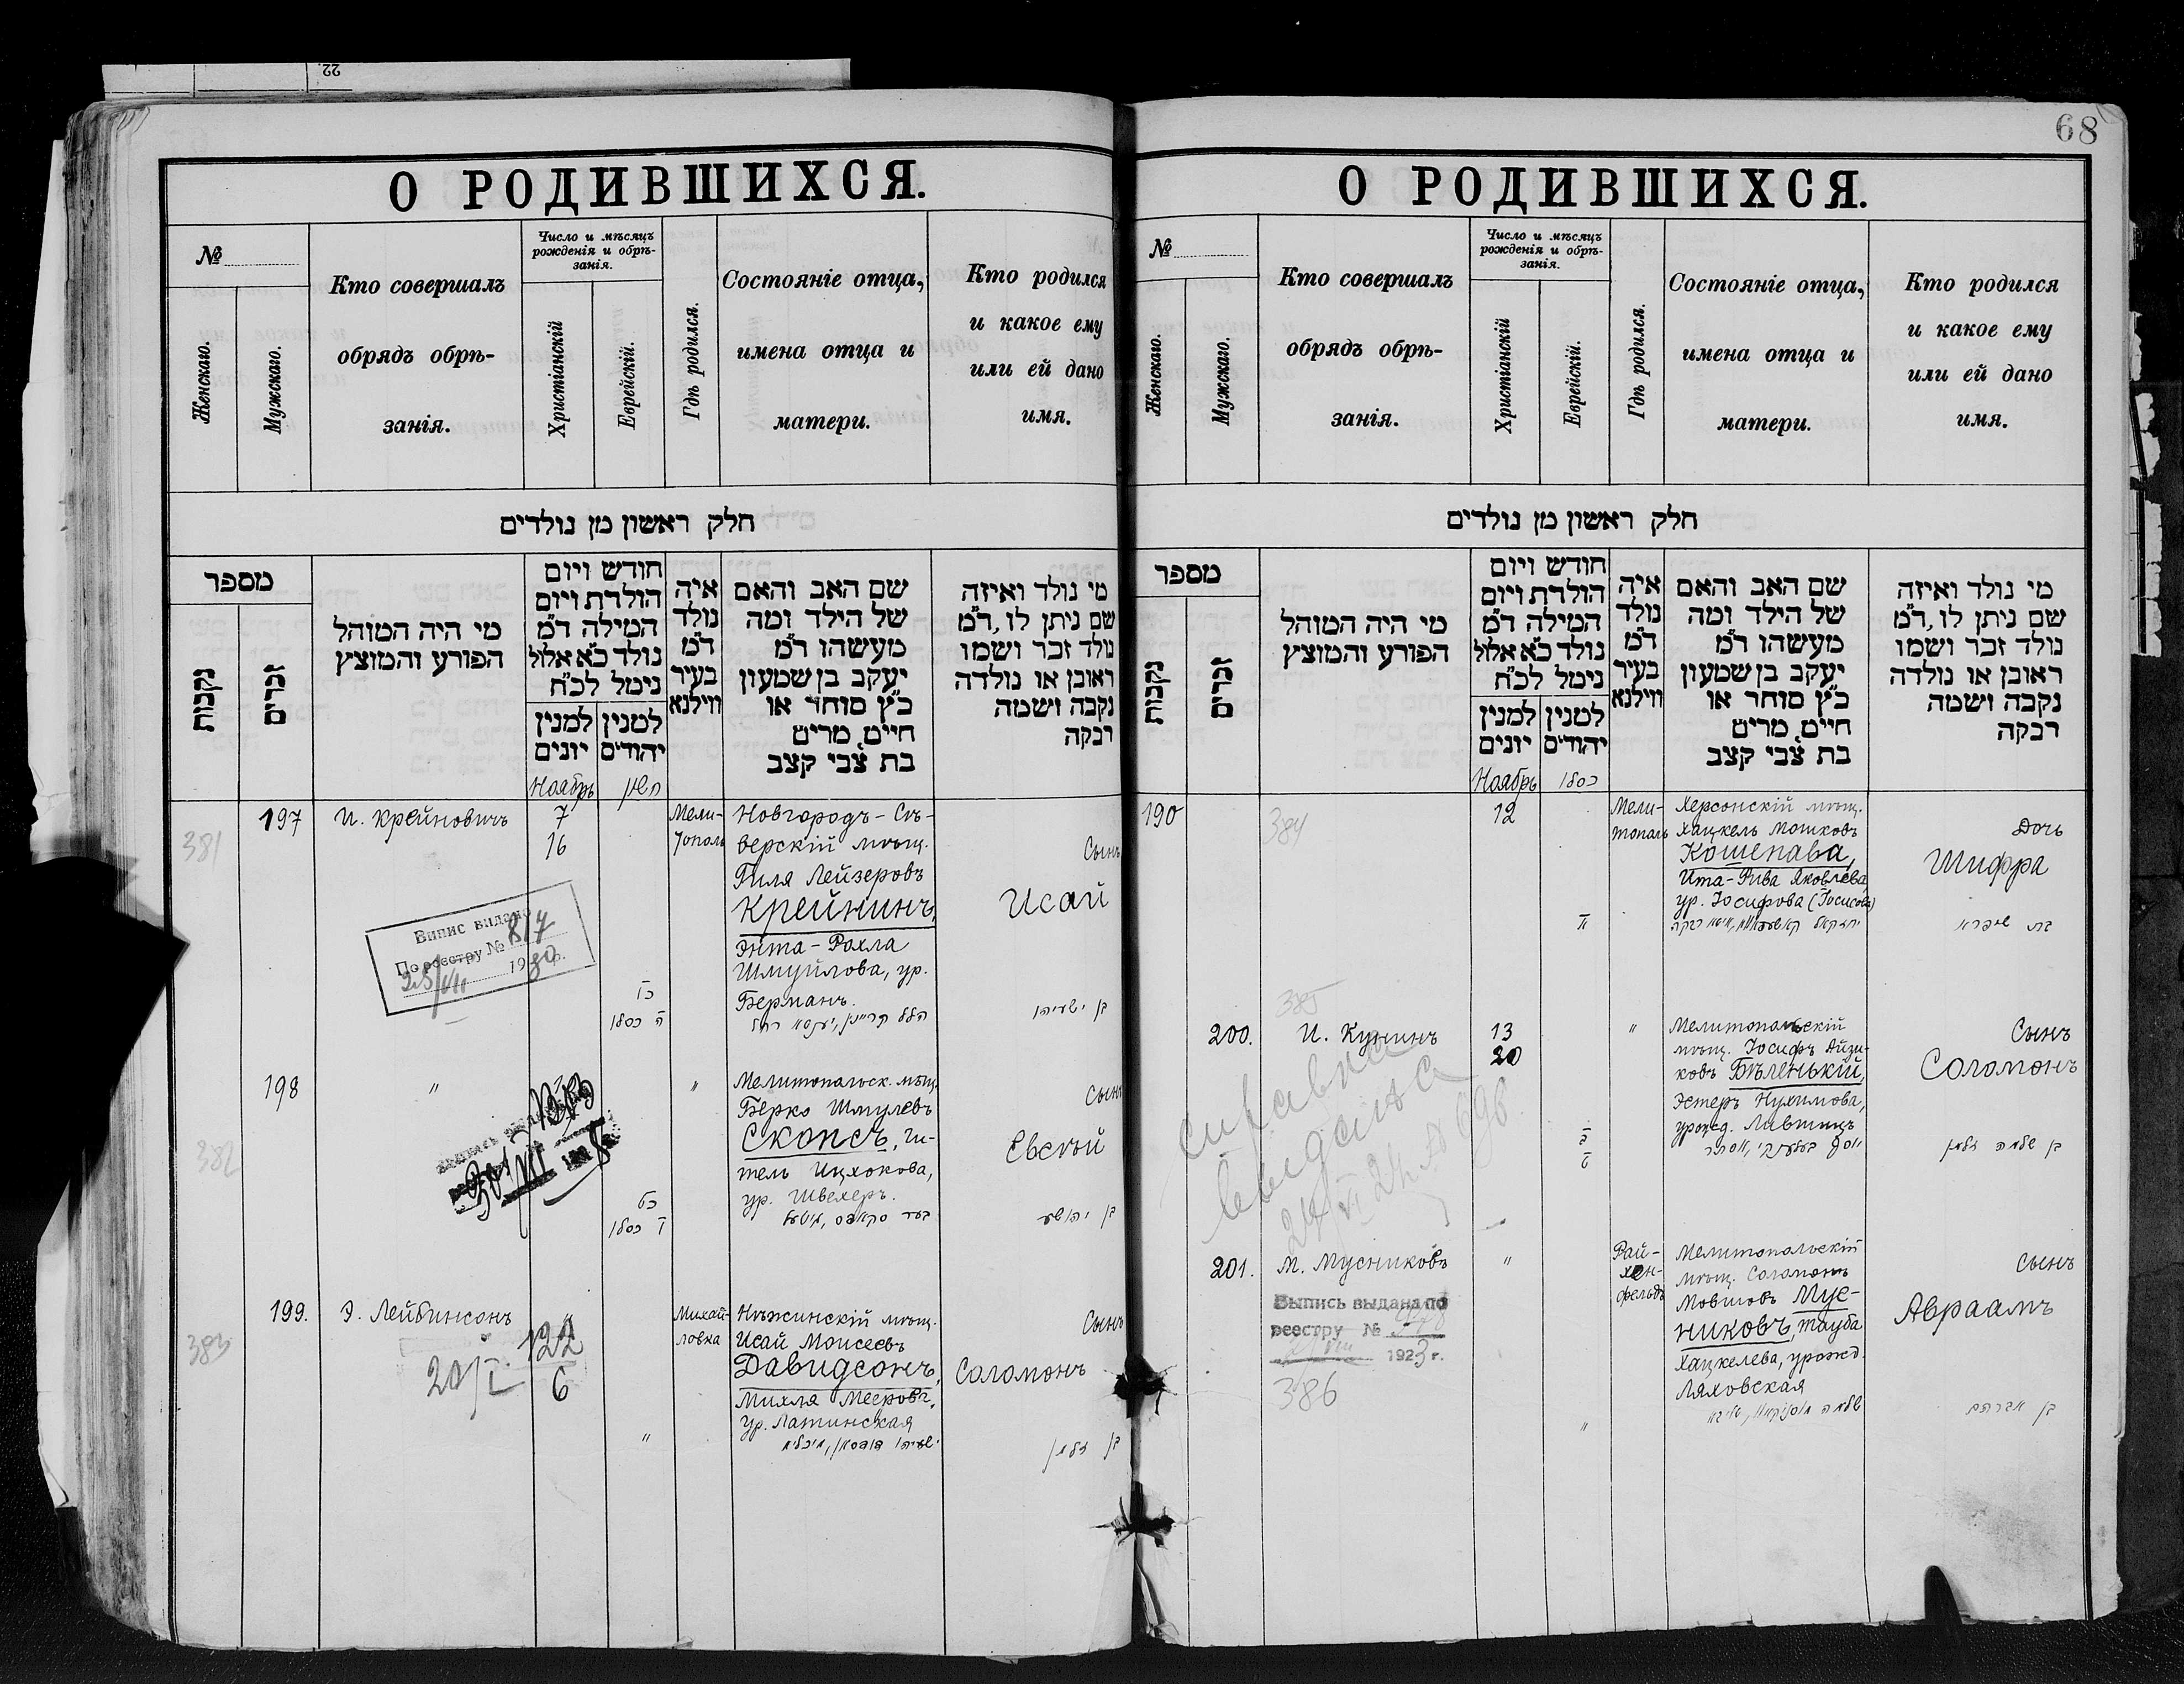 22
68
О РОДИВШИХСЯ.
№
Женскаго.
Мужскаго.
Кто совершалъ
обрядъ обрѣ-
занія.
Число и мѣсяцъ
рожденія и обрѣ-
занія.
Христіанскій
Еврейскій.
Гдѣ родился.
Состояніе отца,
имена отца и
матери.
Кто родился
и какое ему
или ей дано
имя.
חלק ראשון מן נולדים
מספר
נקבות
זכרים
מי היה המוהל
הפורע והמוצץ
חודש ויום
הולדת ויום
המילה ד"מ
נולד כ"א אלול
נימל לכ"ח
למנין
יונים
למנין
יהודים
איה
נולד
ד"מ
בעיר
ווילנא
שם האב והאם
של הילד ומה
מעשהו ד"מ
יעקב בן שמעון
כ"ץ סוחר או
חייט, מרים
בת צבי קצב
מי נולד ואיזה
שם ניתן לו, ד"מ
נולד זכר ושמו
ראובן או נולדה
נקבה ושמה
רבקה
Ноябрь
חשון
381
197
И. Крейновичъ
7
16
Мели-
тополь
Новгородъ-Сѣ-
верскій мѣщ.
Гиля Лейзеровъ
Крейнинъ,
Энта-Рохла
Шмуйлова, ур.
Берманъ.
Сынъ
Исай
Випис видано
По реєстру № 817
25/VII 1930 р.
כז
ה כסלו
הלל קריינין,
בן ישעיהו
382
198
"
"
Мелитопольск. мѣщ.
Берко Шмулевъ
Скопсъ, Ги-
тель Ицхокова,
ур. Швехеръ.
Сынъ
Евсѣй
כט
ז כסלו
בער סקאפס, גיטעל
בן יהושע
383
199.
Э. Лейбинсонъ
20/I
6
Михай-
ловка
Нѣжинскій мѣщ.
Исай Моисеевъ
Давидсонъ,
Михля Мееровъ,
ур. Латинская
Сынъ
Соломонъ
"
ישעיהו דאווידסאן, מיכליא
בן זלמן
О РОДИВШИХСЯ.
№
Женскаго.
Мужскаго.
Кто совершалъ
обрядъ обрѣ-
занія.
Число и мѣсяцъ
рожденія и обрѣ-
занія.
Христіанскій
Еврейскій.
Гдѣ родился.
Состояніе отца,
имена отца и
матери.
Кто родился
и какое ему
или ей дано
имя.
חלק ראשון מן נולדים
מספר
נקבות
זכרים
מי היה המוהל
הפורע והמוצץ
חודש ויום
הולדת ויום
המילה ד"מ
נולד כ"א אלול
נימל לכ"ח
למנין
יונים
למנין
יהודים
איה
נולד
ד"מ
בעיר
ווילנא
שם האב והאם
של הילד ומה
מעשהו ד"מ
יעקב בן שמעון
כ"ץ סוחר או
חייט, מרים
בת צבי קצב
מי נולד ואיזה
שם ניתן לו, ד"מ
נולד זכר ושמו
ראובן או נולדה
נקבה ושמה
רבקה
Ноябрь
כסלו
190
384
12
Мели-
тополь
Херсонскій мѣщ.
Хацкель Мошковъ
Кошепава,
Ита-Рива Яковлева,
ур. Іосифова (Іосисова)
Дочь
Шифра
א
בת שיפרא
385
200.
И. Кунинъ
13
20
"
Мелитопольскій
мѣщ. Іосифъ Айзи-
ковъ Бѣленькій,
Эстеръ Нухимова,
урожд. Лившицъ
Сынъ
Соломонъ
справка
выдана
24/VI 24 № 696
ב
ט
בן שלמה זלמן
201.
М. Мусниковъ
"
Рай-
хен-
фельдъ
Мелитопольскій
мѣщ. Соломонъ
Мовшовъ Мус-
никовъ, Тауба
Хацкелева, урожд.
Ляховская
Сынъ
Авраамъ
Выпись выдана по
реестру №
1923 г.
386
"
בן אברהם